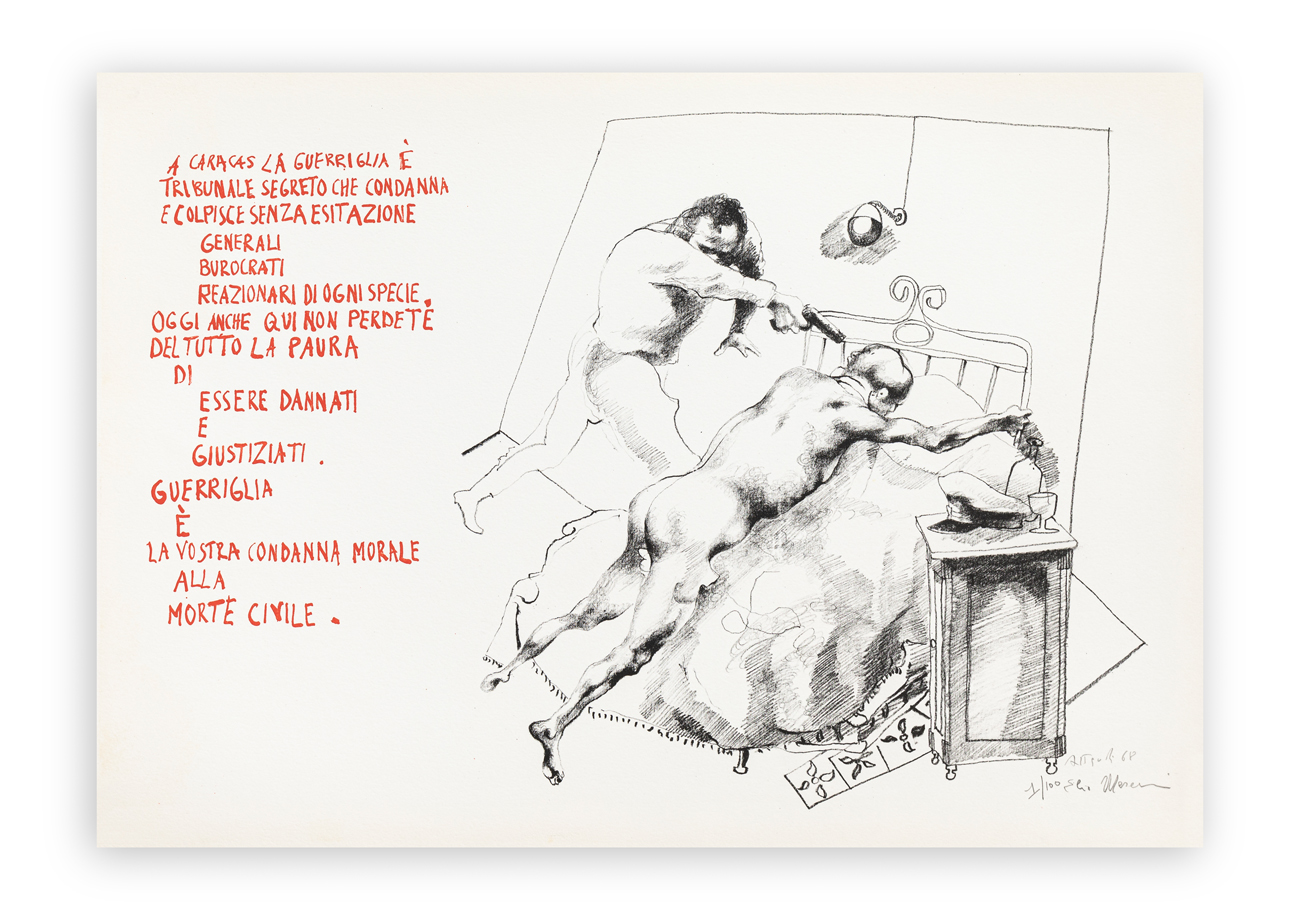 A CARACAS LA GUERRIGLIA È
TRIBUNALE SEGRETO CHE CONDANNA
E COLPISCE SENZA ESITAZIONE
GENERALI
BUROCRATI
REAZIONARI DI OGNI SPECIE.
OGGI ANCHE QUI NON PERDETE
DEL TUTTO LA PAURA
DI
ESSERE DANNATI
E
GIUSTIZIATI.
GUERRIGLIA
È
LA VOSTRA CONDANNA MORALE
ALLA
MORTE CIVILE.
68
1/100